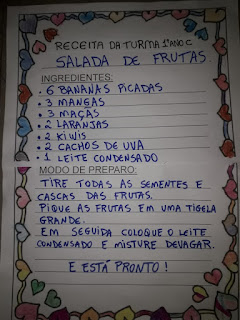 RECEITA DA TURMA 1º ANO C
SALADA DE FRUTAS
INGREDIENTES:
. 6 BANANAS PICADAS
. 3 MANGAS
. 3 MAÇAS
. 2 LARANJAS
. 2 KIWIS
. 2 CACHOS DE UVA
. 1 LEITE CONDENSADO
MODO DE PREPARO:
TIRE TODAS AS SEMENTES E
CASCAS DAS FRUTAS.
PIQUE AS FRUTAS EM UMA TIGELA
GRANDE.
EM SEGUIDA COLOQUE O LEITE
CONDENSADO E MISTURE DEVAGAR.
E ESTÁ PRONTO!